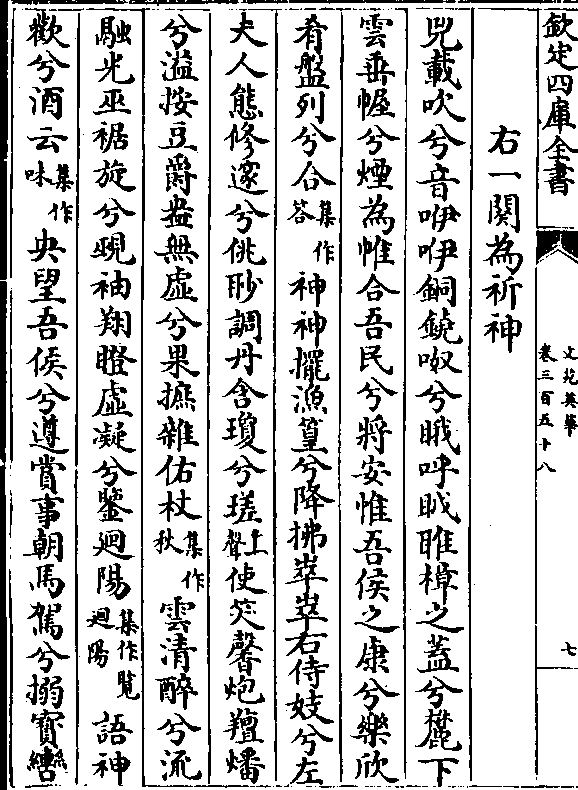 欽定四庫全書
文苑英華
卷三百五十八
七
右一闋為祈神
兕載吹兮音咿咿銅鐃呶兮眩呼眩睢樟之蓋兮麓下
雲垂幄兮煙為帷合吾民兮將安惟吾侯之康兮樂欣
肴盤列兮合集作荅神神擺漁篁兮降拂窣窣右侍妓兮左
夫人態修邃兮佻眇調丹含瓊兮瑳上聲使笑馨炮羶燔
兮溢按豆爵盎無虛兮果摭雜佑杖集作秋雲清醉兮流
融光巫裾旋兮覡袖翔瞪虛凝兮鑒迴陽集作覽迴陽語神
歡兮酒云集作味央望吾侯兮遵賞事朝馬駕兮搦寶轡